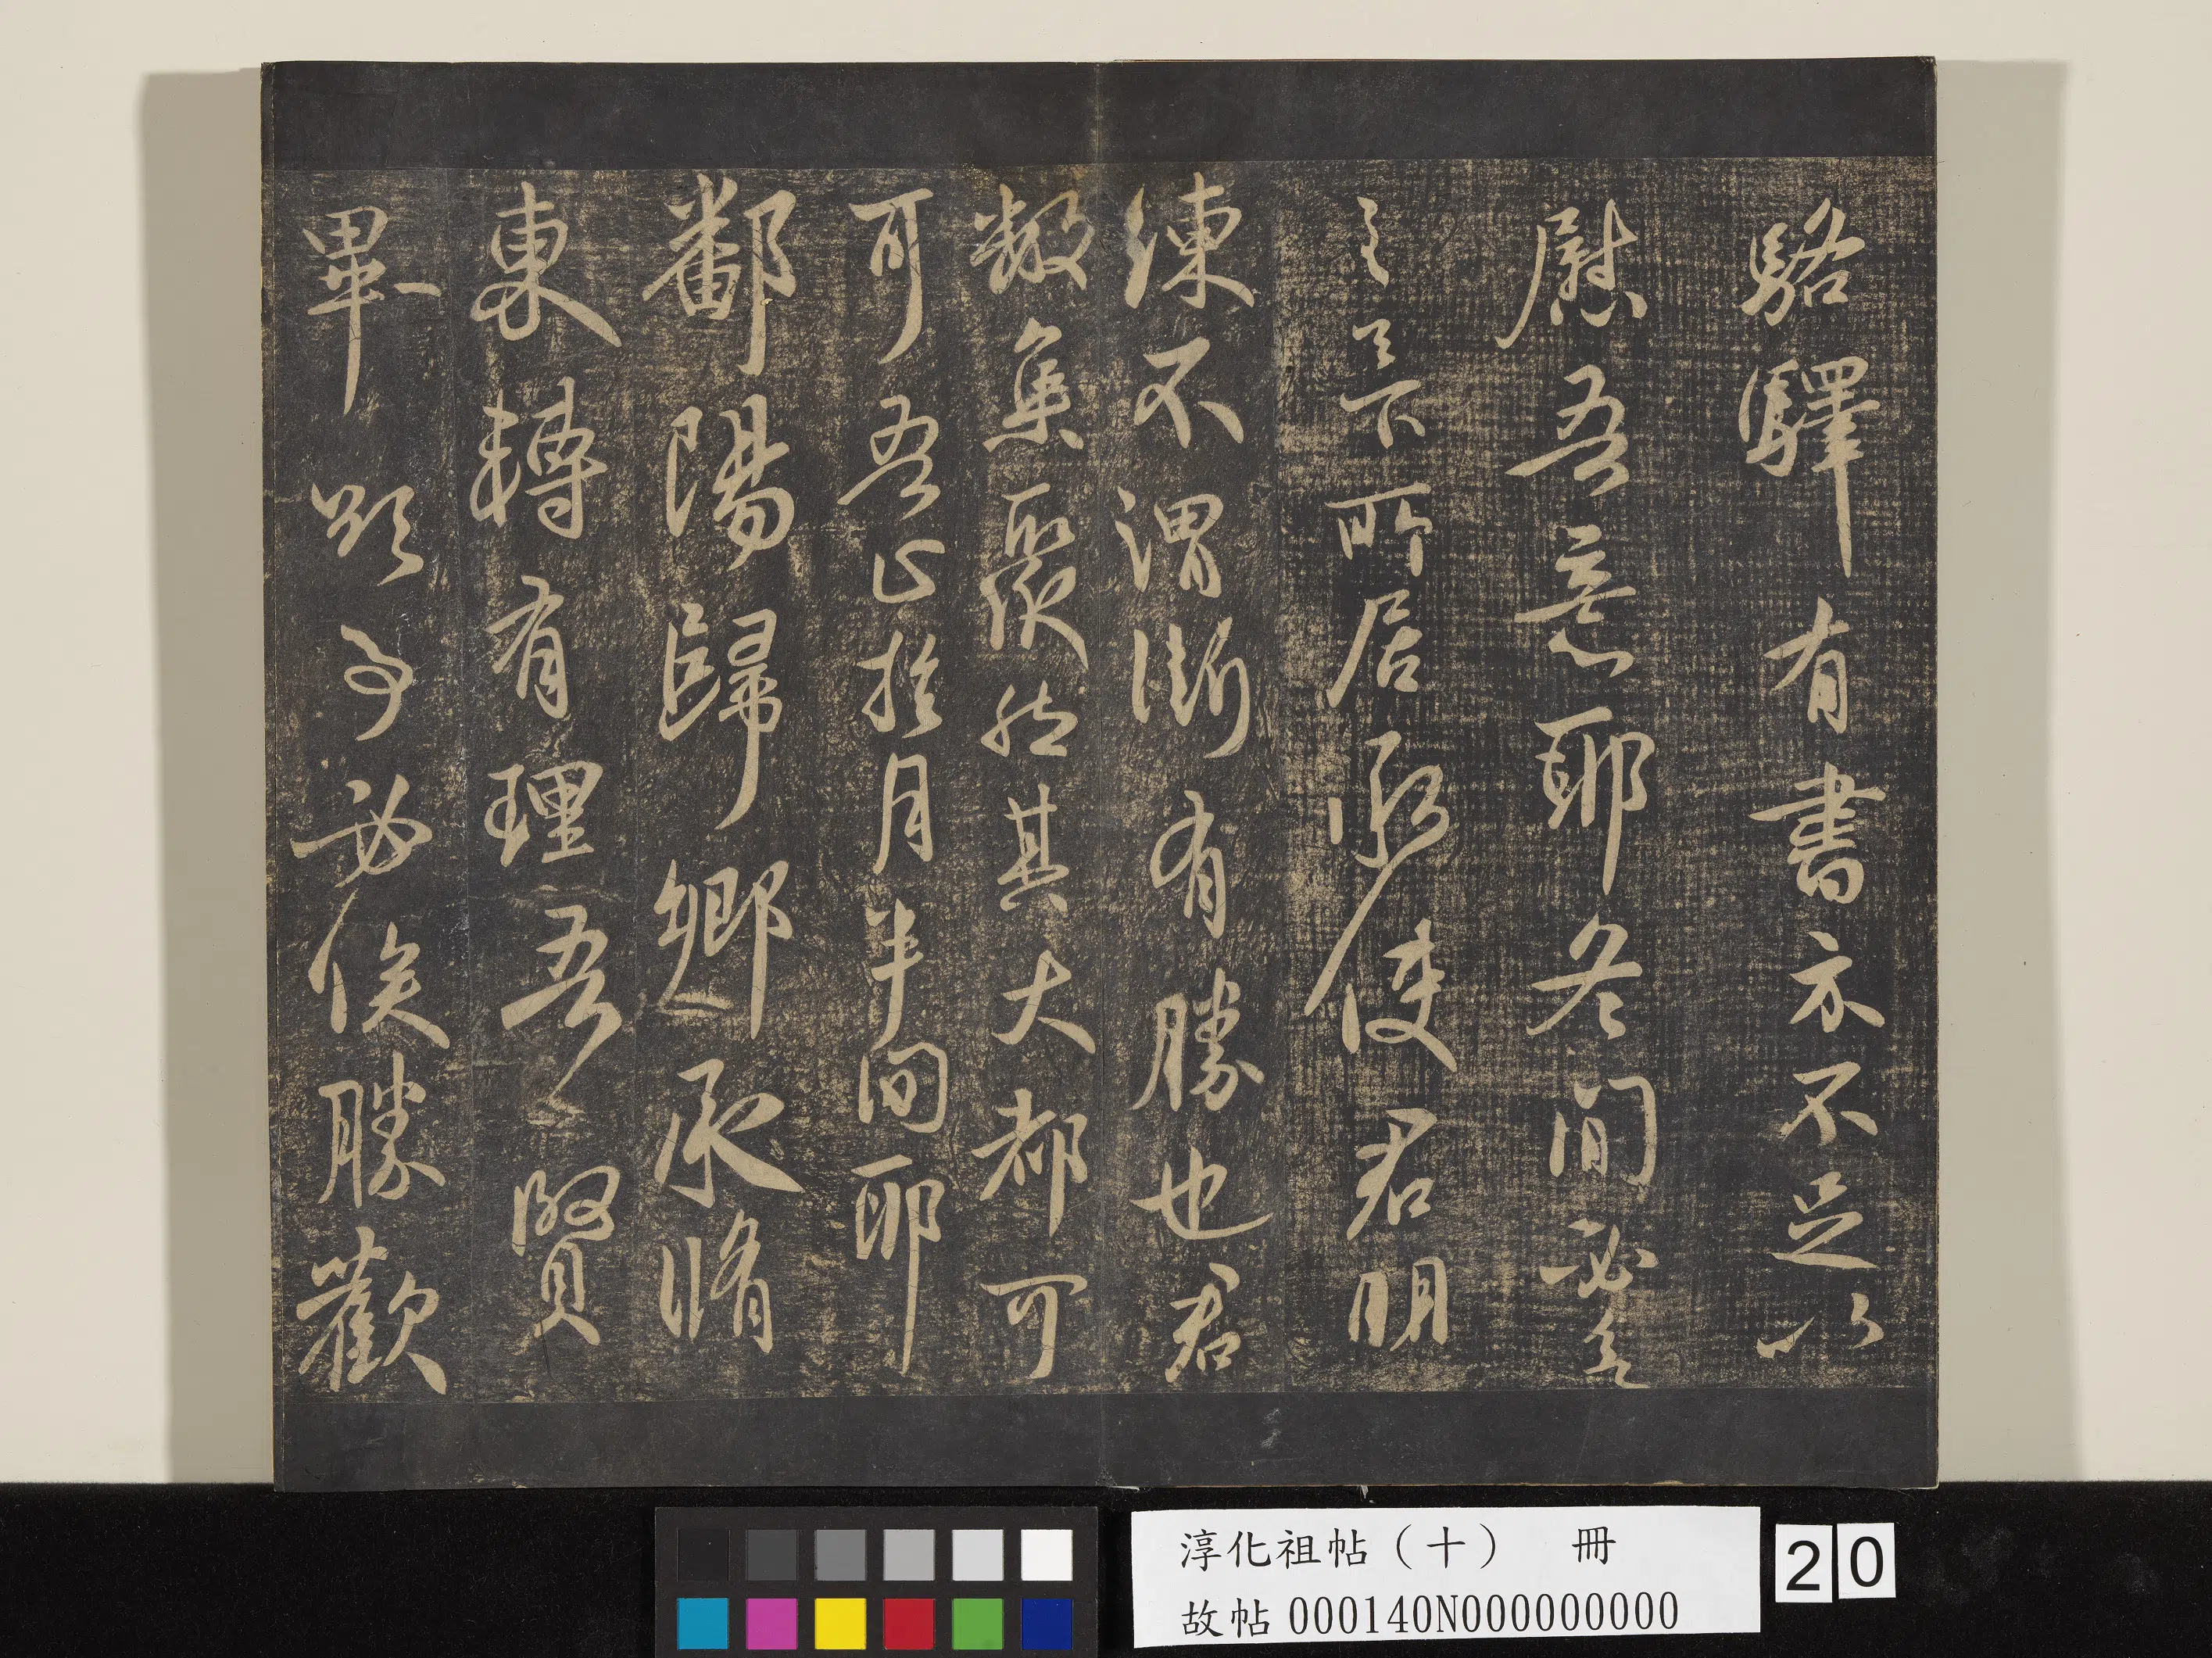 駱驛有書亦不足以
慰吾意耶冬間必
足下所居承使君明
練不謂漸有勝也君
數集聚然其大都可
可吾正於月半間耶
鄱陽歸鄉承脩
東轉有理吾賢
畢欲事必俟勝歡
淳化祖帖（十） 冊
故帖000140N000000000
20